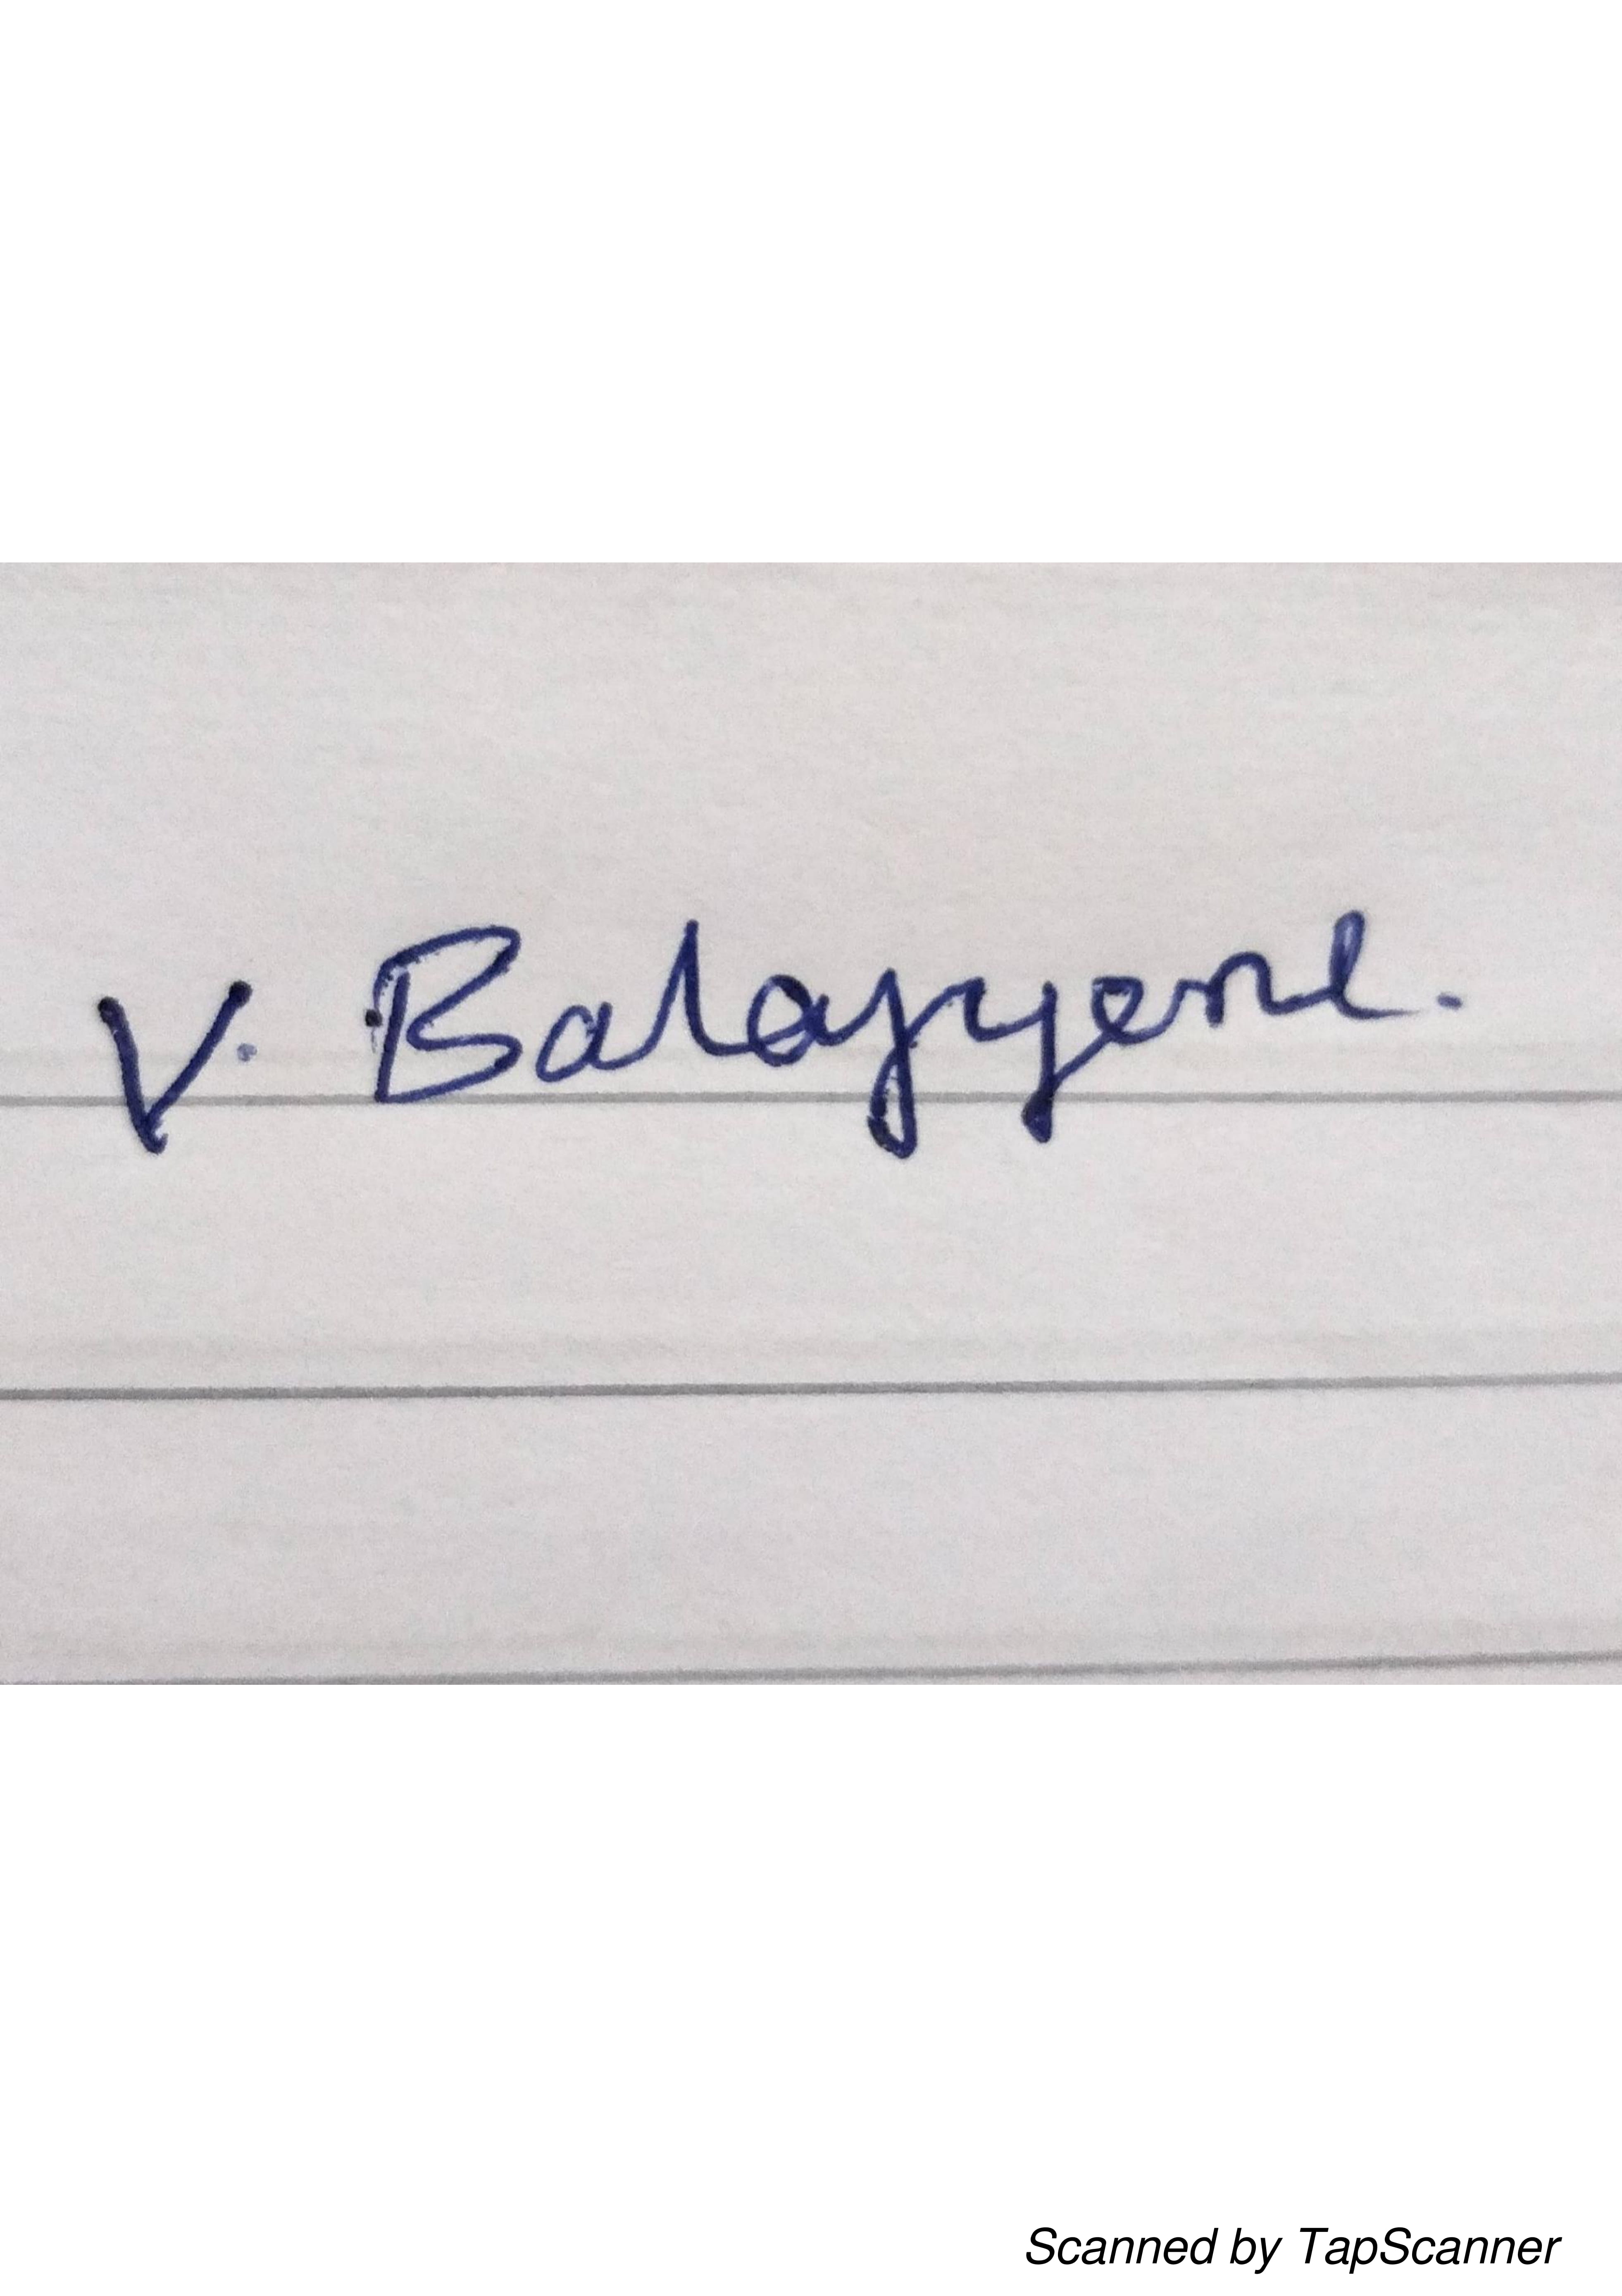 V. Balayyene.
Scanned by TapScanner